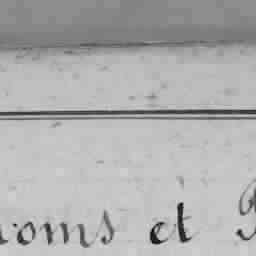 noms et